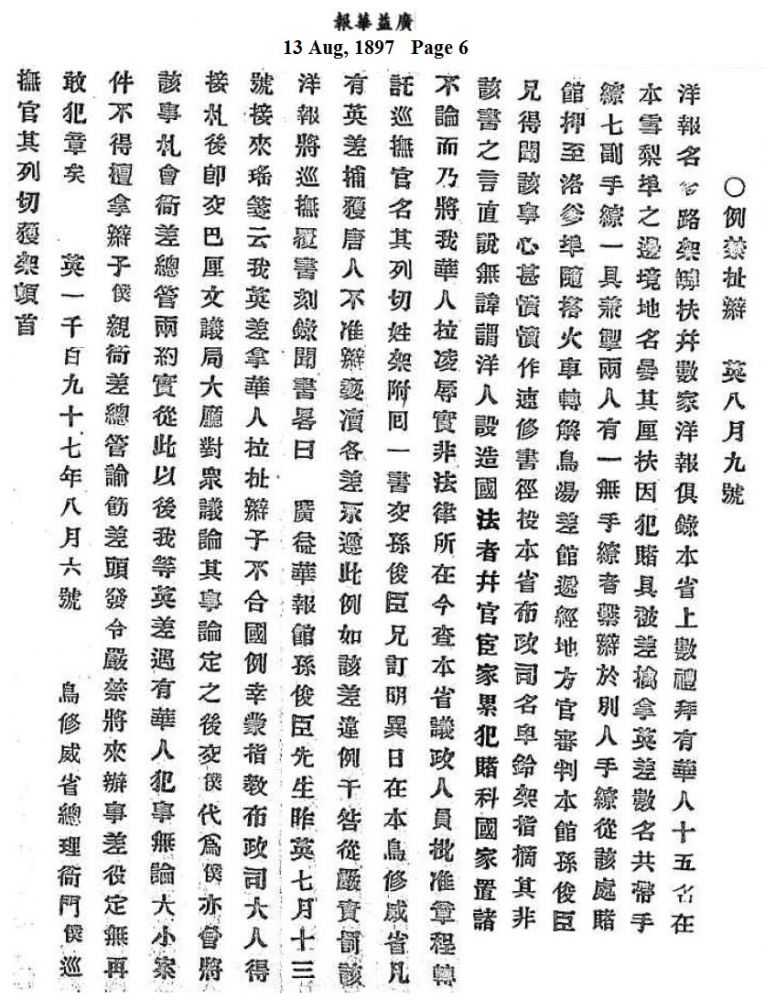 廣益華報
13 Aug, 1897 Page 6
○例禁扯辮 英八月九號
洋報名路架扶并數家洋報俱錄本省上數禮拜有華人十五名在
本雪梨埠之邊境地名晏其厘扶因犯賭具被差擒拿英差數名共帶手
繚七副手繚一具兼兩人有一無手繚者繫辮於別人手繚從該處賭
館押至洛爹埠隨搭火車轉解鳥湯差館遞經地方官審判本館孫俊臣
兄得聞該事心甚憤憤作速修書徑投本省布政司名卑鈴架指摘其非
該書之言直說無諱謂洋人設造國法者并官宦家累犯賭科國家置諸
不論而乃將我華人拉凌辱實非法律所在今查本省議政人員批准章程轉
託巡撫官名其列切姓架附囘一書交孫俊臣兄訂明異日在本鳥修威省凡
有英差捕獲唐人不准辮褻瀆各差永遵此例如該差違例干咎從嚴實罰該
洋報將巡撫覆書刻錄聞書畧曰 廣益華報館孫俊臣先生昨英七月十三
號接來瑤箋云我英差拿華人拉扯辮子不合國例幸蒙指教布政司大人得
接札後卽交巴厘文議局大廳對衆議論其事論定之後交僕代爲僕亦曾將
該事札會衙差總管兩約實從此以後我等英差遇有華人犯事無論大小案
件不得擅拿辮子僕親衙差總管諭飭差頭發令嚴禁將來辦事差役定無再
敢犯章矣 英一千百九十七年八月六號 鳥修威省總理衙門僕巡
撫官其列切獲架頓首